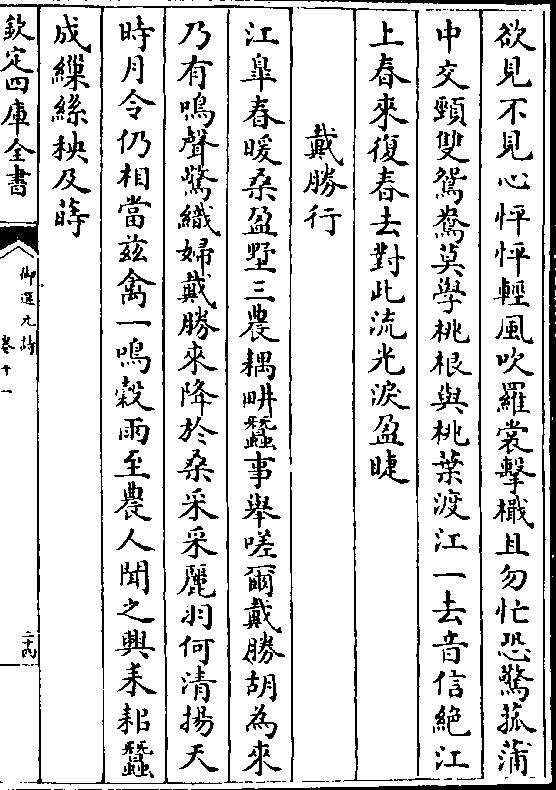 欲見不見心怦怦輕風吹羅裳擊檝且勿忙恐驚菰蒲
中交頸雙鴛鴦莫學桃根與桃葉渡江一去音信絕江
上春來復春去對此流光淚盈睫
戴勝行
江臯春暖桑盈墅三農耦畊蠶事舉嗟爾戴勝胡為來
乃有鳴聲驚織婦戴勝來降於桑采采麗羽何清揚天
時月令仍相當兹禽一鳴穀雨至農人聞之興耒耜蠶
成繅絲秧及蒔
欽定四庫全書
御選元詩
卷十一
二十四